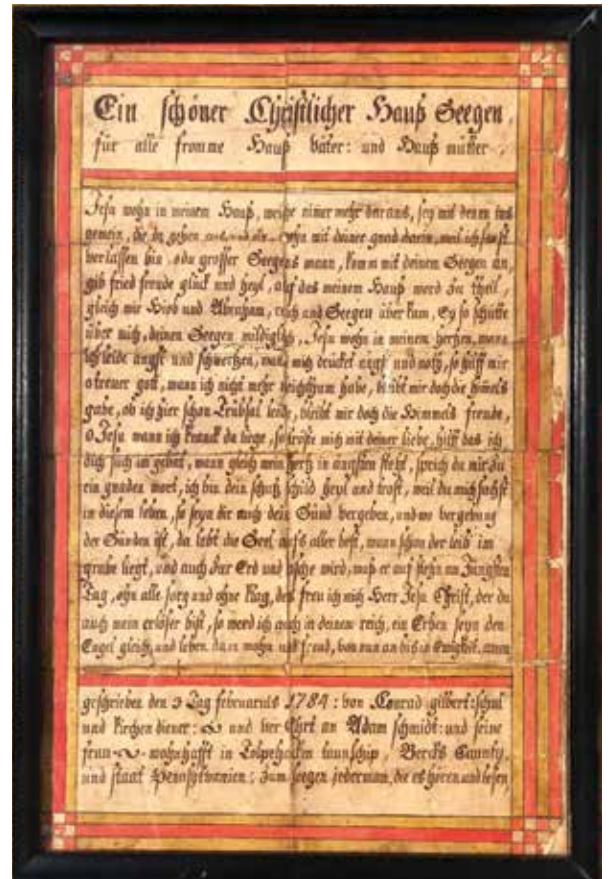 Ein schöner Christlicher Hauß Seegen,
für alle fromme Hauß väter: und Hauß mütter.
Jesu wohn in meinem Hauß, weiche nimer mehr daraus, sey mit denen ins
gemein, die da gehen wohn mit deiner gnad darin, weil ich sonst
verlassen bin, o du grosser Seegens mann, komm mit deinem Seegen an,
gib fried freude glück und heyl, auf das meinem Hauß werd zu theil,
gleich wie Hiob und Abraham, reich und Seegen über kam, Ey so schütte
über mich, deinen Seegen mildiglich, Jesu wohn in meinem hertzen, wann
ich leide angst und schmertzen, wann mich drücket angst und noth, so hilff mir
o treuer gott, wann ich nicht mehr reichthum habe, bleibt mir doch die himels
gabe, ob ich hier schon Trübsal leide, bleibt mir doch die Himmels freude,
O Jesu wann ich kranck da liege, so tröste mich mit deiner liebe, hilff das ich
dich such im gebät, wann gleich mein hertz in ängsten steht, sprich du mir zu
ein gnaden wort, ich bin dein schutz schild heyl und trost, weil du mich suchst
in diesem leben, so seyn dir auch dein Sünd vergeben, und wo vergebung
der Sünden ist, da lebt die Seel aufs aller best, wann schon der leib im
grabe liegt, und auch zur Erd und asche wird, muß er auf stehn am Jüngsten
Tag, ohn alle sorg und ohne klag, des freu ich mich Herr Jesu Christ, der du
auch mein erlöser bist, so werd ich auch in deinem reich, ein Erben seyn den
Engel gleich, und leben in und freud, von nun an bis in Ewigkeit. amen
geschrieben den 3 Tag februarius 1784: von Conrad gilbert: schul
und kirchen diener: und ver Ehrt an Adam schmidt: und seine
frau wohnhafft in Tolpehacken taunschip, Bercks Caunty,
und staat Pensylvanien: zum seegen jederman, die es hören und lesen,